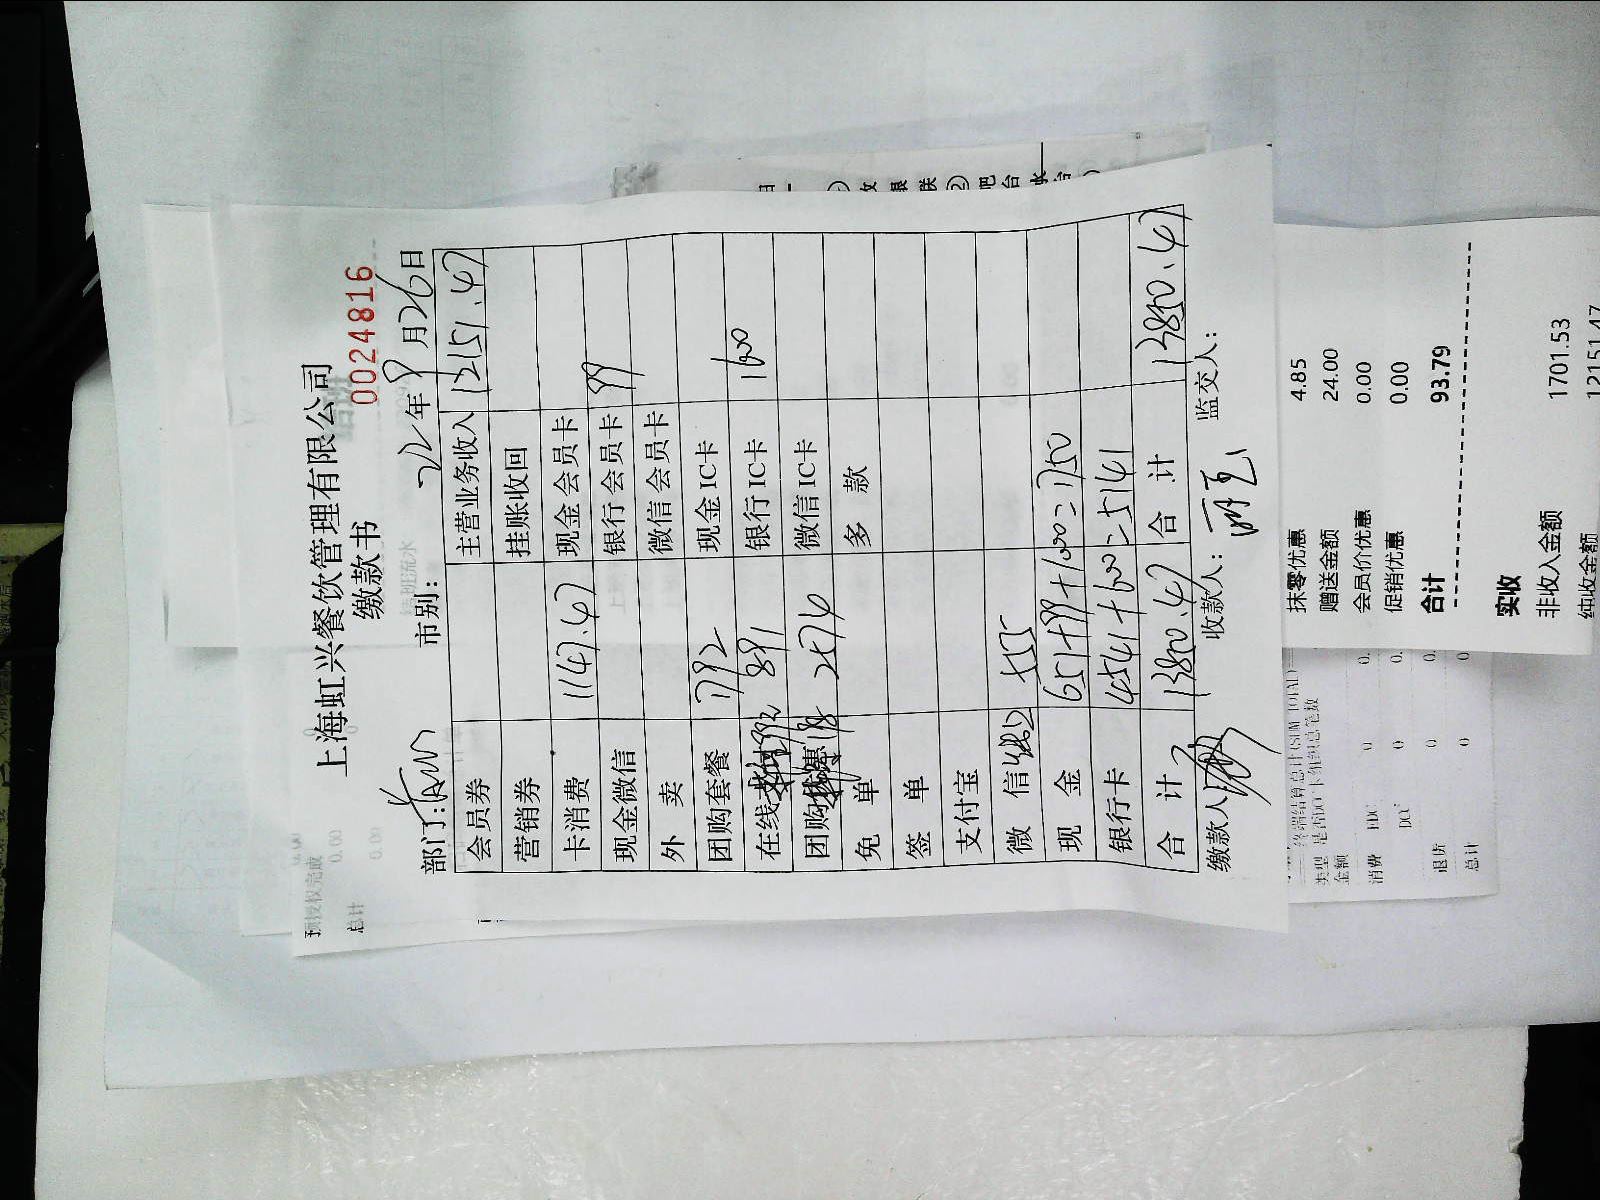 上海虹兴餐饮管理有限公司
缴款书
0024816
部门: 市别: 22年9月26日
会员券 主营业务收入 12151.47
营销券 挂账收回
卡消费 1147.47 现金会员卡
现金微信 银行会员卡 99
外卖 微信会员卡
团购套餐 1792 现金IC卡
在线 891 银行IC卡 1600
团购 惠 2574 微信IC卡
免单 多款
签单
支付宝
微信 555
现金 651+99+1000=1750
银行卡 4541+600=5141
合计 13850.47 合计 13850.47
缴款人 收款人: 监交人:
抹零优惠 4.85
赠送金额 24.00
会员价优惠 0.00
促销优惠 0.00
合计 93.79
实收
非收入金额 1701.53
纯收金额 12151.47
预授权完成 0.00
总计 0.00
终端结算总计(SUM TOTAL)
金额
消费
退货
总计